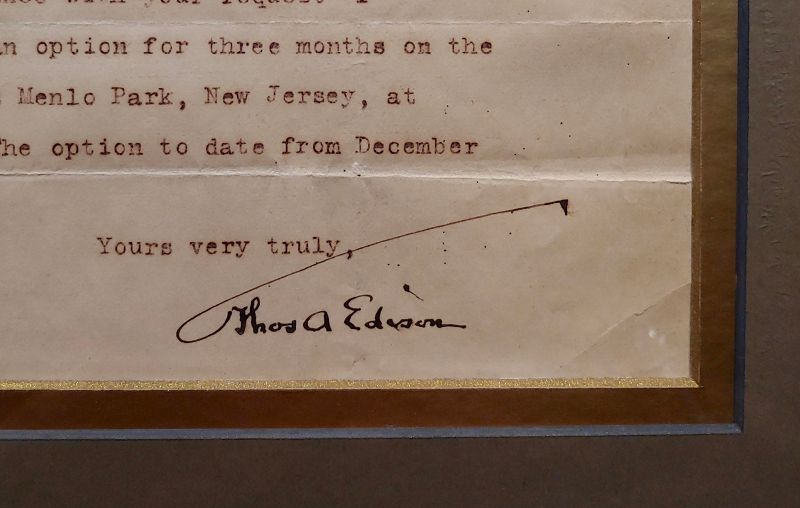 with your request I
an option for three months on the
Menlo Park, New Jersey, at
The option to date from December
Yours very truly,
Thos A Edison